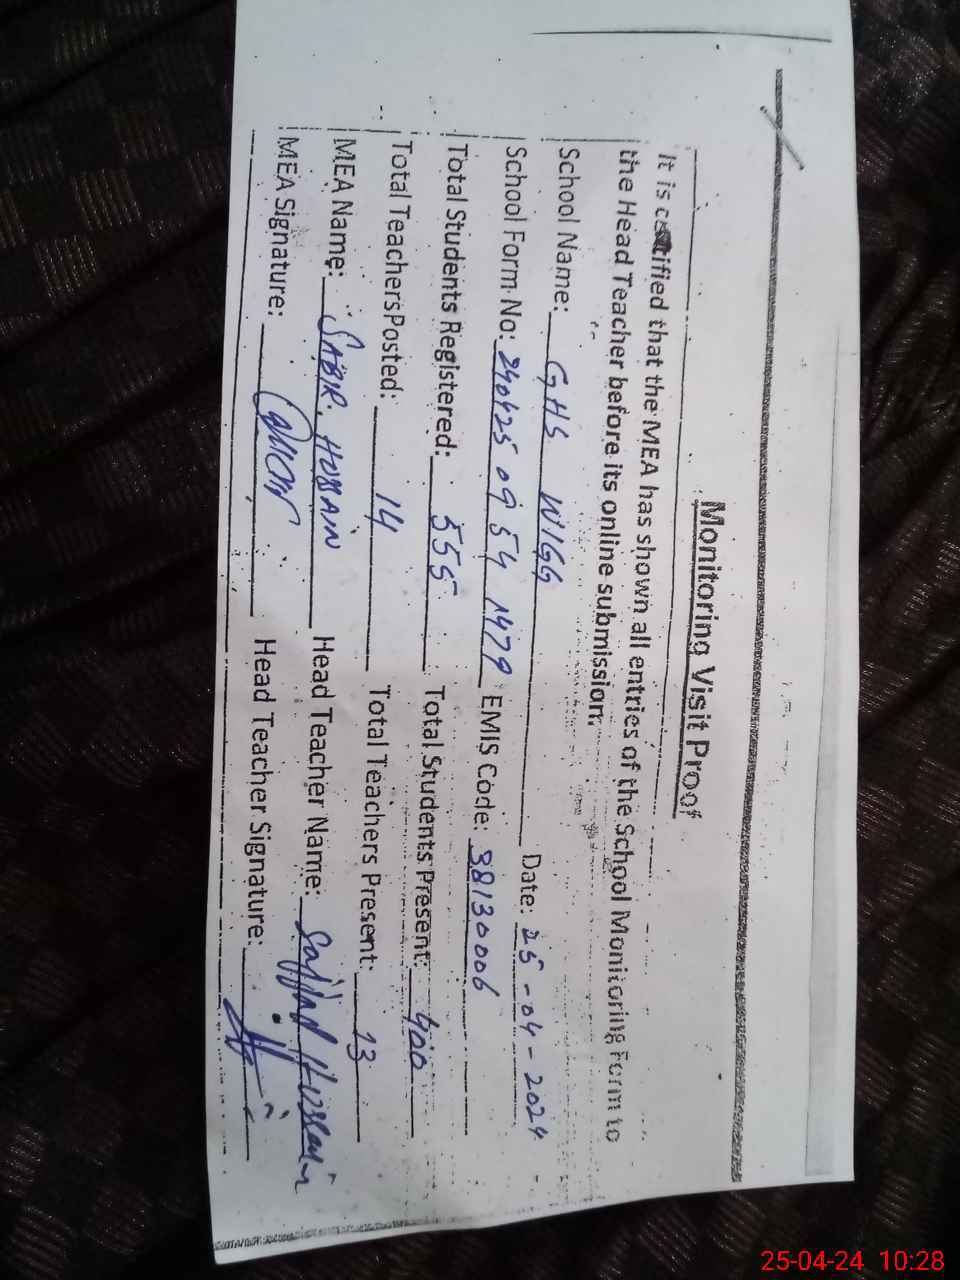 Monitoring Visit Proof
It is certified that the MEA has shown all entries of the School Monitoring Form to
the Head Teacher before its online submission.
School Name: GHS WIGG Date: 25-04-2024
School Form No: 240425 09 54 1479 EMIS Code: 38130006
Total Students Registered: 555 Total Students Present: 400
Total Teachers Posted: 14 Total Teachers Present: 13
MEA Name: SABIR. HUSAIN Head Teacher Name: Sajjad Hussain
MEA Signature: Head Teacher Signature:
25-04-24 10:28